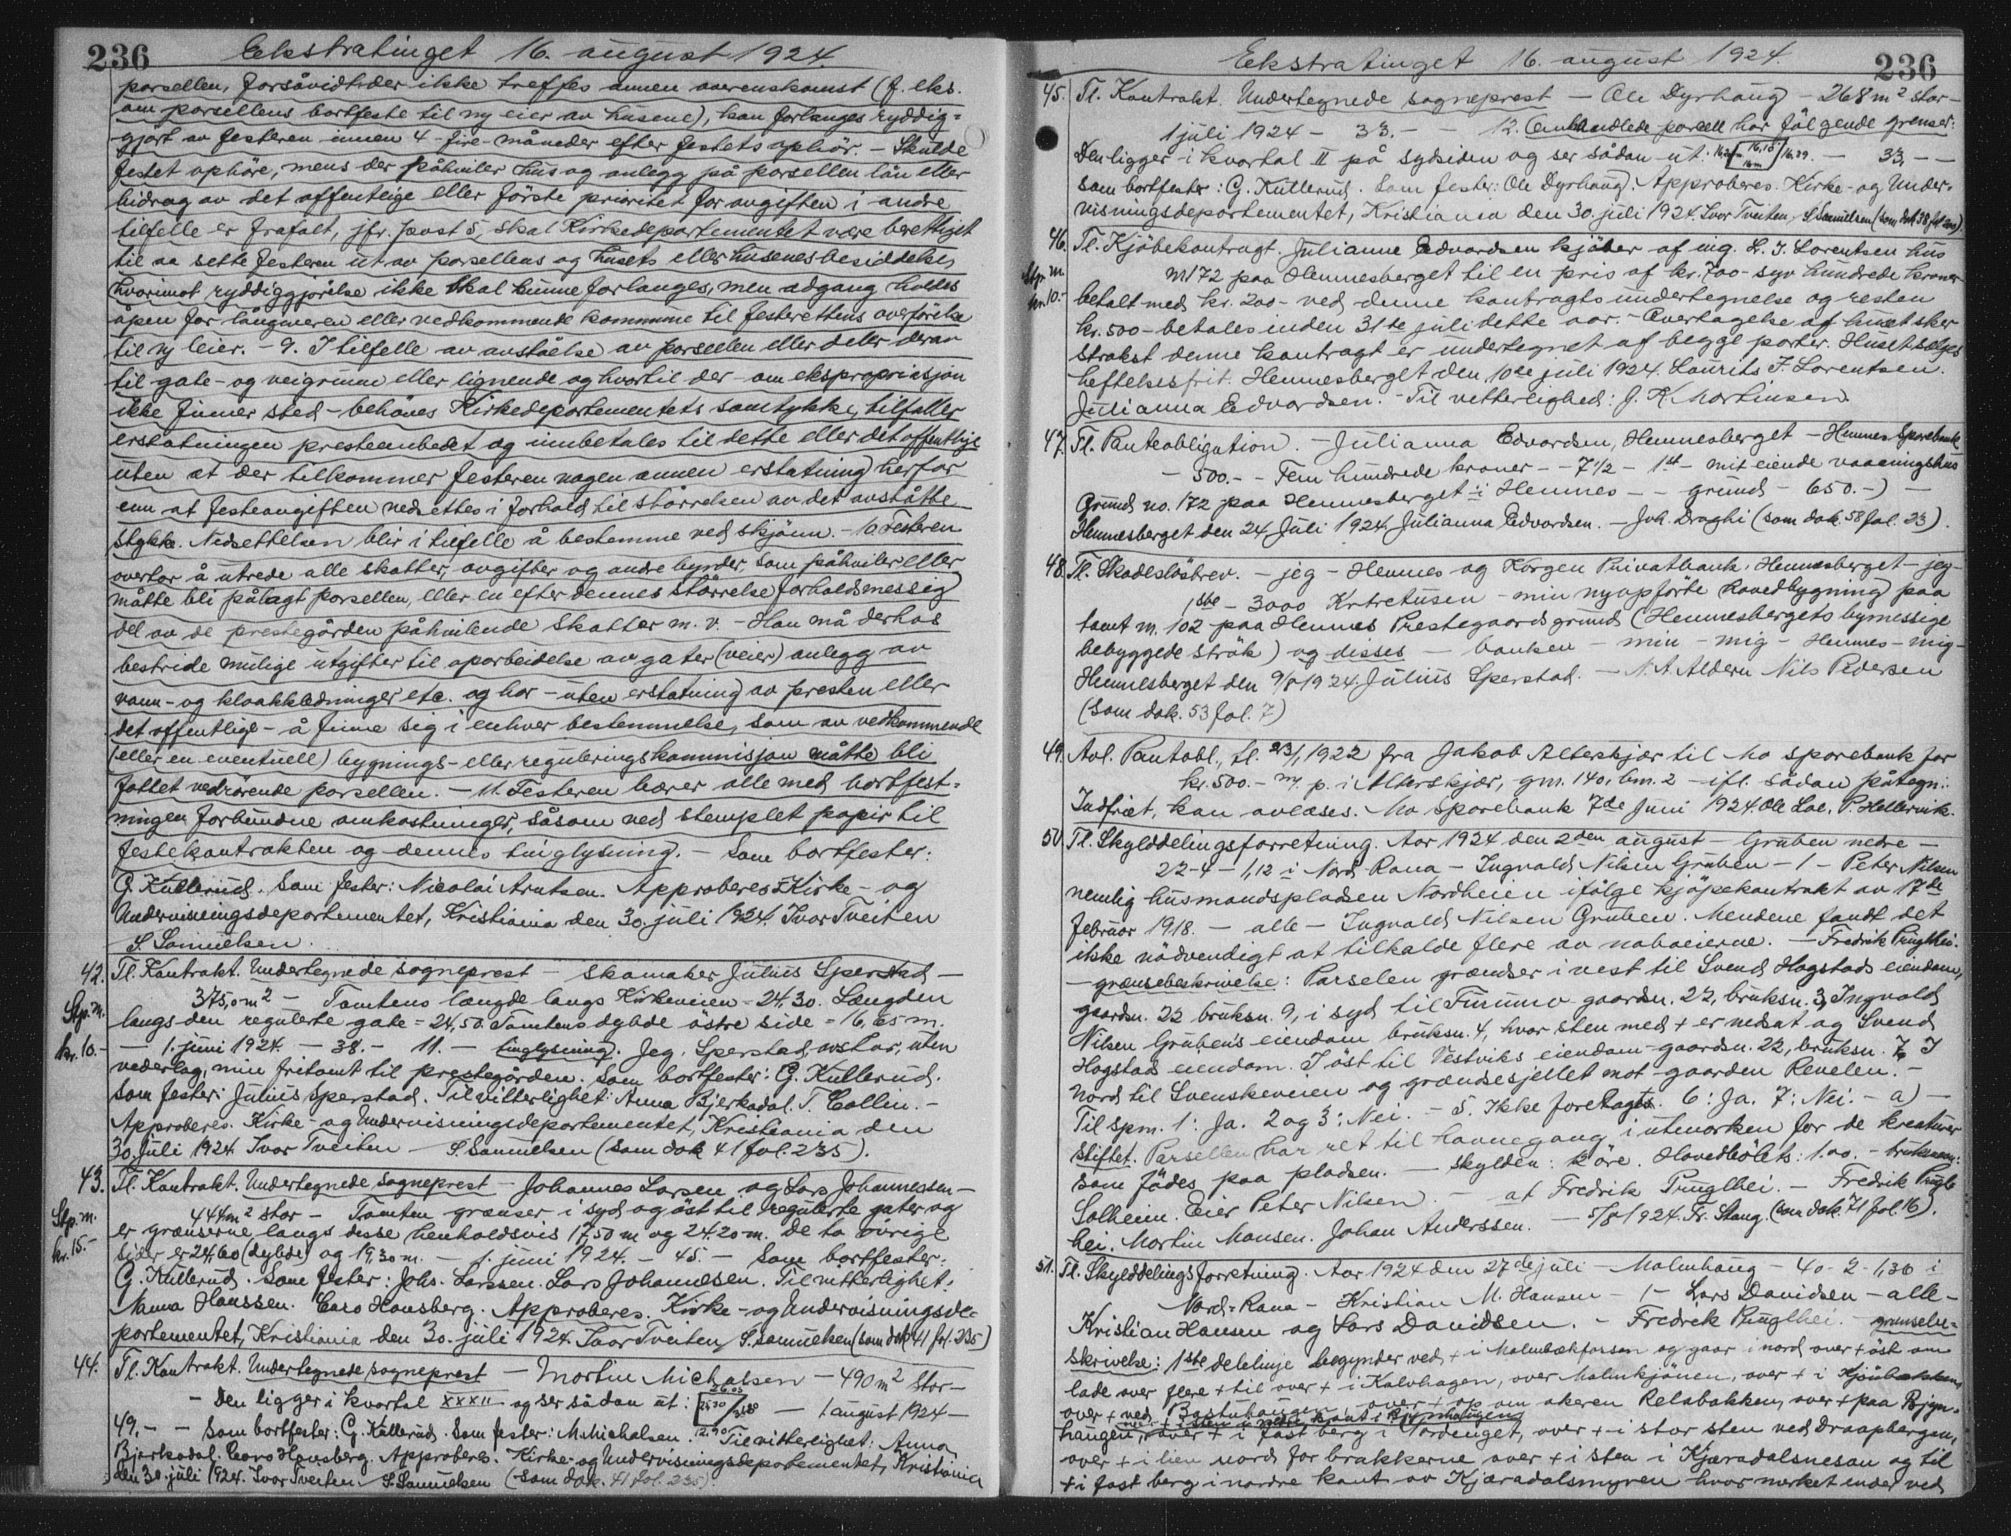 236
Ekstratinget 16. august 1924.
parsellen, forsåvidt der ikke treffes annen overenskomst (f. eks.
om parsellens bortfeste til ny eier av husene), kan forlanges ryddig-
gjort av festeren innen 4 - fire - måneder efter festets ophör. - Skulde
festet ophöre, mens der påhviler hus og anlegg på parsellen lån eller
bidrag av det offentlige eller förste prioritet for avgiften i andre
tilfelle er frafalt, jfr. post 5, skal Kirkedepartementet være berettiget
til aa sette festeren ut av parsellens og husets eller husenes besiddelse,
hvorimot ryddiggjörelse ikke skal kunne forlanges, men adgang holdes
åpen for långiveren eller vedkommende kommune til festerettens overförelse
til ny leier. - 9. I tilfelle av avståelse av parsellen eller deler derav
til gate- og veigrunn eller lignende og hvortil der - om ekspropriasjon
ikke finner sted - behöves Kirkedepartementets samtykke, tilfaller
erstatningen presteembedet og innbetales til dette eller det offentlige
uten at der tilkommer festeren nogen annen erstatning herfor
enn at festeavgiften nedsettes i forhold til störrelsen av det avståtte
stykke. Nedsettelsen blir i tilfelle å bestemme ved skjönn. - 10. Festeren
overtar å utrede alle skatter, avgifter og andre byrder, som påhviler eller
måtte bli pålagt parsellen, eller en efter dennes störrelse forholdsmessig
del av de prestegården påhvilende skatter m. v. - Han må derhos
bestride mulige utgifter til oparbeidelse av gater (veier) anlegg av
vann- og kloakkledninger etc. og har - uten erstatning av presten eller
det offentlige - å finne sig i enhver bestemmelse, som av vedkommende
(eller en eventuell) bygnings- eller reguleringskommisjon måtte bli
fattet vedrörende parsellen. - 11. Festeren bærer alle med bortfest-
ningen forbundne omkostninger, såsom ved stemplet papir til
festekontrakten og dennes tinglysning. - Som bortfester:
G. Kullerud. Som fester: Nicolai Arntsen. Approberes Kirke- og
Undervisningsdepartementet, Kristiania den 30. juli 1924. Ivar Tveiten
S. Samuelsen.
42. Tl. Kontrakt. Undertegnede sogneprest - skomaker Julius Sperstad -
375,0 m² - Tomtens længde langs Kirkeveien = 24,30. Længden
Stp. m. langs den regulerte gate = 24,50. Tomtens dybde östre side = 16,65 m.
kr. 10.- - 1. juni 1924. - 38. - 11. - tinglysning. Jeg, Sperstad, avstar, uten
vederlag, min fritomt til prestegården. Som bortfester: G. Kullerud.
Som fester: Julius Sperstad. Til vitterlighet: Anna Bjerkadal. T. Collin. -
Approberes. Kirke- og Undervisningsdepartementet, Kristiania, den
30. juli 1924. Ivar Tveiten S. Samuelsen (som dok. 41 fol. 235).
43. Tl. Kontrakt. Undertegnede sogneprest - Johannes Larsen og Lars Johannessen -
Stp. m. 444 m² stor - Tomten grænser i syd og öst til regulerte gater og
er grænserne langs disse henholdsvis 17,50 m og 24.20 m. De to övrige
kr. 15.- sider er 24,60 (dybde) og 19,30 m. - 1. juni 1924. - 45 - Som bortfester:
G. Kullerud. Som fester: Johs. Larssen. Lars Johannesen. Til vitterlighet:
Nanna Hanssen. Caro Hansberg. Approberes. Kirke- og Undervisningsde-
partementet, Kristiania den 30. juli 1924. Ivar Tveiten, S. Samuelsen (som dok 41 fol. 235)
44. Tl. Kontrakt. Undertegnede sogneprest - Mortin Michalsen - 490 m² stor -
- Den ligger i kvartal XXXII og ser sådan ut: - 1 august 1924 -
49. - - Som bortfester: G. Kullerud. Som fester: M. Michalsen. Til vitterlighet: Anna
Bjerkadal. Caro Hansberg. Approberes. Kirke- og Undervisningsdepartementet, Kristiania
den 30. juli 1924. Ivar Tveiten S. Samuelsen (som dok. 41 fol. 235).
Ekstratinget 16. august 1924.
236
45. Tl. Kontrakt. Undertegnede sogneprest - Ole Dyrhaug - 268 m² stor -
1 juli 1924 - 33. - - 12. Omhandlede parsell har fölgende grenser:
Den ligger i kvartal II på sydsiden og ser sådan ut: - 33, - -
Som bortfester: G. Kullerud. Som fester: Ole Dyrhaug. Approberes. Kirke- og Under-
visningsdepartementet, Kristiania den 30. juli 1924. Ivar Tveiten, S. Samuelsen (som dok. 38 fol. 200).
46. Tl. Kjöbekontragt. Julianne Edvardsen kjöber af ing. L. J. Lorentsen hus
Stp. m. M 172 paa Hemnesberget til en pris af kr. 700 - syv hundrede kroner -
kr. 10.- betalt med kr. 200 - ved denne kontragts undertegnelse og resten
kr. 500 - betales inden 31te juli dette aar. - Overtagelse af huset sker
strakst denne kontragt er undertegnet af begge parter. Huset sælges
heftelsesfrit. Hemnesberget den 10de juli 1924. Laurits J. Lorentsen.
Julianna Edvardsen. - Til vitterlighed: J. K. Martinsen.
47. Tl. Panteobligation. - Julianna Edvardsen, Hemnesberget - Hemnes Sparebank
- 500. - - Fem hundrede kroner - - 7½ - 1st - mit eiende vaaningshus
Grund no. 172 paa Hemnesberget i Hemnes - - grund - 650. -) -
Hemnesberget den 24 Juli 1924. Julianna Edvardsen. - Joh. Draghi (som dok. 58 fol. 23).
48. Tl. Skadeslösbrev. - jeg - Hemnes og Korgen Privatbank, Hemnesberget - jeg -
1ste - 3000 Kr tretusen - min nyopförte hovedbygning paa
tomt m. 102 paa Hemnes Prestegaards grund (Hemnesbergets bymessige
bebyggede strök) og disses - banken - min - mig - Hemnes - mig -
Hemnesberget den 9/8 1924. Julius Sperstad. - N. A. Aldern Nils Pedersen
(som dok. 53 fol. 7)
49. Avl. Pantobl., tl. 23/1 1922 fra Jakob Alterskjær til Mo sparebank for
kr. 500. - m. p. i Alterskjær, gm. 140, bm. 2 - ifl. sådan påtegn.:
Indfriet, kan avlæses. Mo Sparebank 7de Juni 1924. Ole Loe. P. Hellervik.
50. Tl. Skylddelingsforretning. Aar 1924 den 2den august - Gruben nedre -
22 - 4 - 1,12 i Nord Rana - Ingvald Nilsen Gruben - 1 - Peter Nilsen
nemlig husmandspladsen Nordheien ifölge kjöpekontrakt av 17de
februar 1918. - alle - Ingvald Nilsen Gruben. Mendene fandt det
ikke nödvendigt at tilkalde flere av naboeierne. - Fredrik Pruglhei.
- grænsebeskrivelse: Parselen grænser i vest til Svend Hagstads eiendom,
gaardsn. 22 bruksn. 9, i syd til Furumo gaardsn. 22, bruksn. 3, Ingvald
Nilsen Grubens eiendom bruksn. 4, hvor sten med + er nedsat og Svend
Hagstads eiendom. I öst til Vestviks eiendom gaardsn. 22, bruksn. 7, I
nord til Svenskeveien og grændsesjellet mot gaarden Revelen. -
Til spm. 1: Ja. 2 og 3: Nei. - 5. Ikke foretagts. 6: Ja. 7: Nei. - a) -
stiftet. Parsellen har ret til havnegang i utmarken for de kreaturer
som födes paa pladsen. - skylden: 2 öre. Hovedbölets: 1.00. - bruksnavn:
Solheim. Eier Peter Nilsen. - at Fredrik Pruglhei. - Fredrik Prugl-
hei. Martin Monsen. Johan Anderssen. - 5/8 1924. Fr. Stang. (som dok. 71 fol. 16).
51. Tl. Skylddelingsforretning. Aar 1924 den 27de juli - Malmhaug - 40 - 2 - 1,36 i
Nord-Rana - Kristian M. Hansen - 1 - Lars Davidsen - alle -
Kristian Hansen og Lars Davidsen. - Fredrik Pruglhei. - grænsebe-
skrivelse: 1ste delelinje begynder ved + i Malmbækforsen og gaar i nord over + öst om
lade over flere + til over + i Kalvhagen, over Malmkjönen, over + i Kjönbækken,
over + ved Bastuhaugen, over + op om akeren Relsbakken, over + paa Bjyn-
haugen, over + i fast berg i Nordenget, over + i stor sten ved Draapbergan,
over + i lien nord for brakkerne over + i sten i Kjæradalsnesan og til
+ i fast berg i nordre kant av Kjæradalsmyren hvor merket ender ved